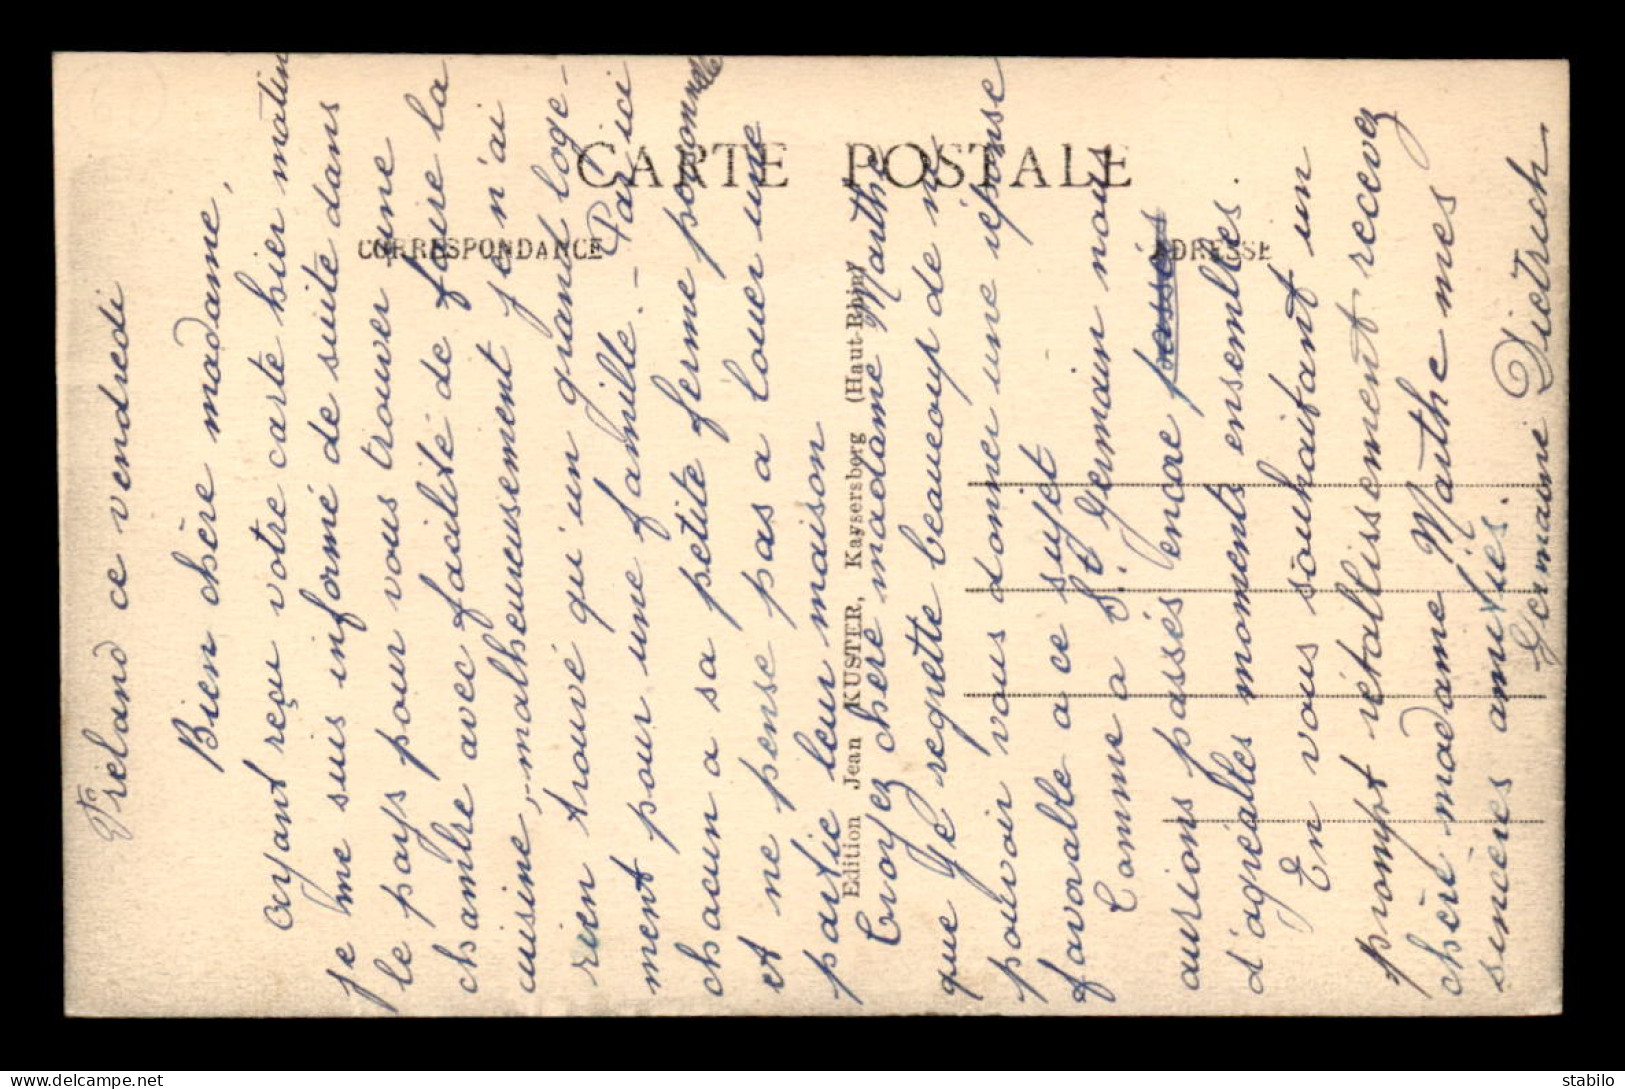 CARTE POSTALE
CORRESPONDANCE
ADRESSE
Edition Jean KUSTER, Kaysersberg (Haut-Rhin)
Freland ce vendredi
Bien chère madame,
Ayant reçu votre carte hier matin
je me suis informé de suite dans
le pays pour vous trouver une
chambre avec facilité de faire la
cuisine, malheureusement je n'ai
rien trouvé qu'un grand loge-
ment pour une famille. - Par ici
chacun a sa petite ferme personnelle
et ne pense pas a louer une
partie leur maison
Croyez chère madame Marthe
que je regrette beaucoup de ne
pouvoir vous donner une réponse
favorable a ce sujet
Comme a St Germain nous
aurions passés encore passés
d'agréables moments ensembles.
En vous souhaitant un
prompt rétablissement recevez
chère madame Marthe mes
sincères amitiés.
Germaine Dietrich
stabilo